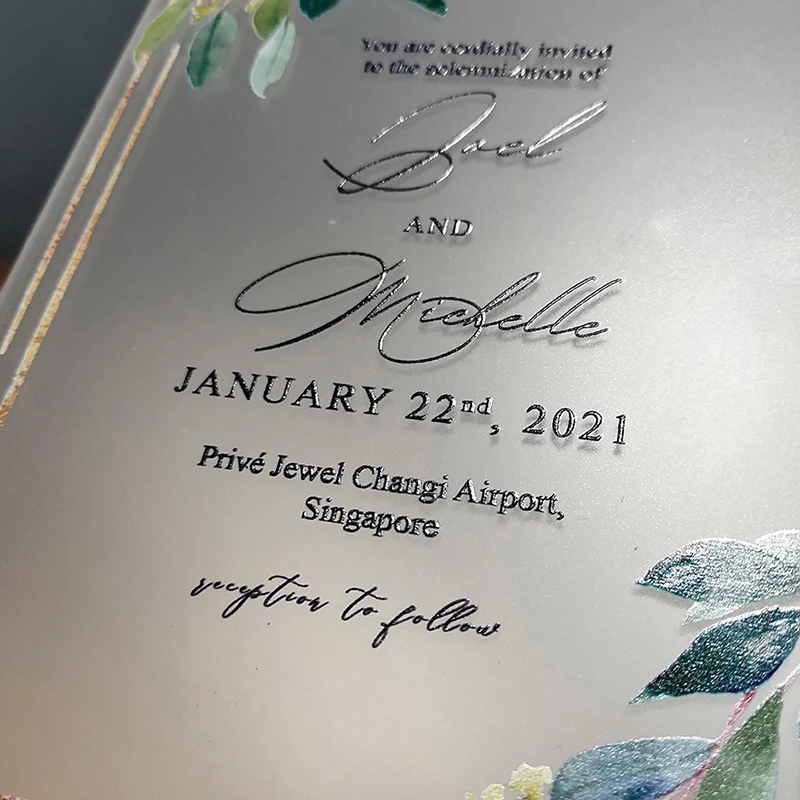 You are cordially invited
to the solemnization of
Joel
AND
Michelle
JANUARY 22nd, 2021
Privé Jewel Changi Airport,
Singapore
reception to follow